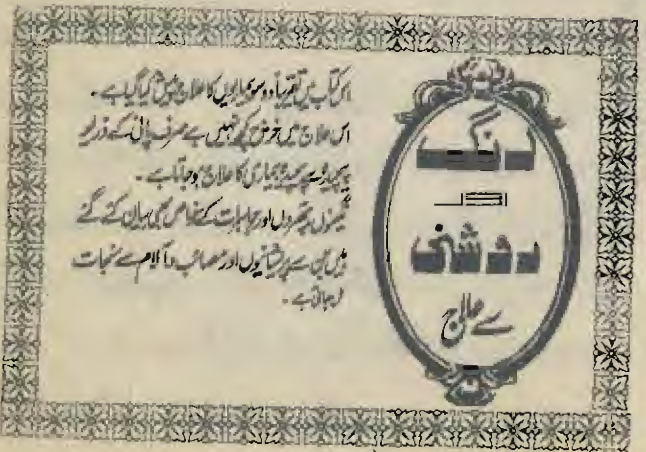 رنگ
اور
روشنی
سے علاج
اس کتاب میں تقریباً دو سو بیماریوں کا علاج پیش کیا گیا ہے۔
اس علاج میں خرچ کچھ نہیں ہے صرف پانی کے ذریعہ
پیچیدہ سے پیچیدہ بیماری کا علاج ہو جاتا ہے۔
نگینوں، پتھروں اور جواہرات کے خواص بھی بیان کئے گئے
ہیں جن سے پریشانیوں اور مصائب و آلام سے نجات
مل جاتی ہے۔